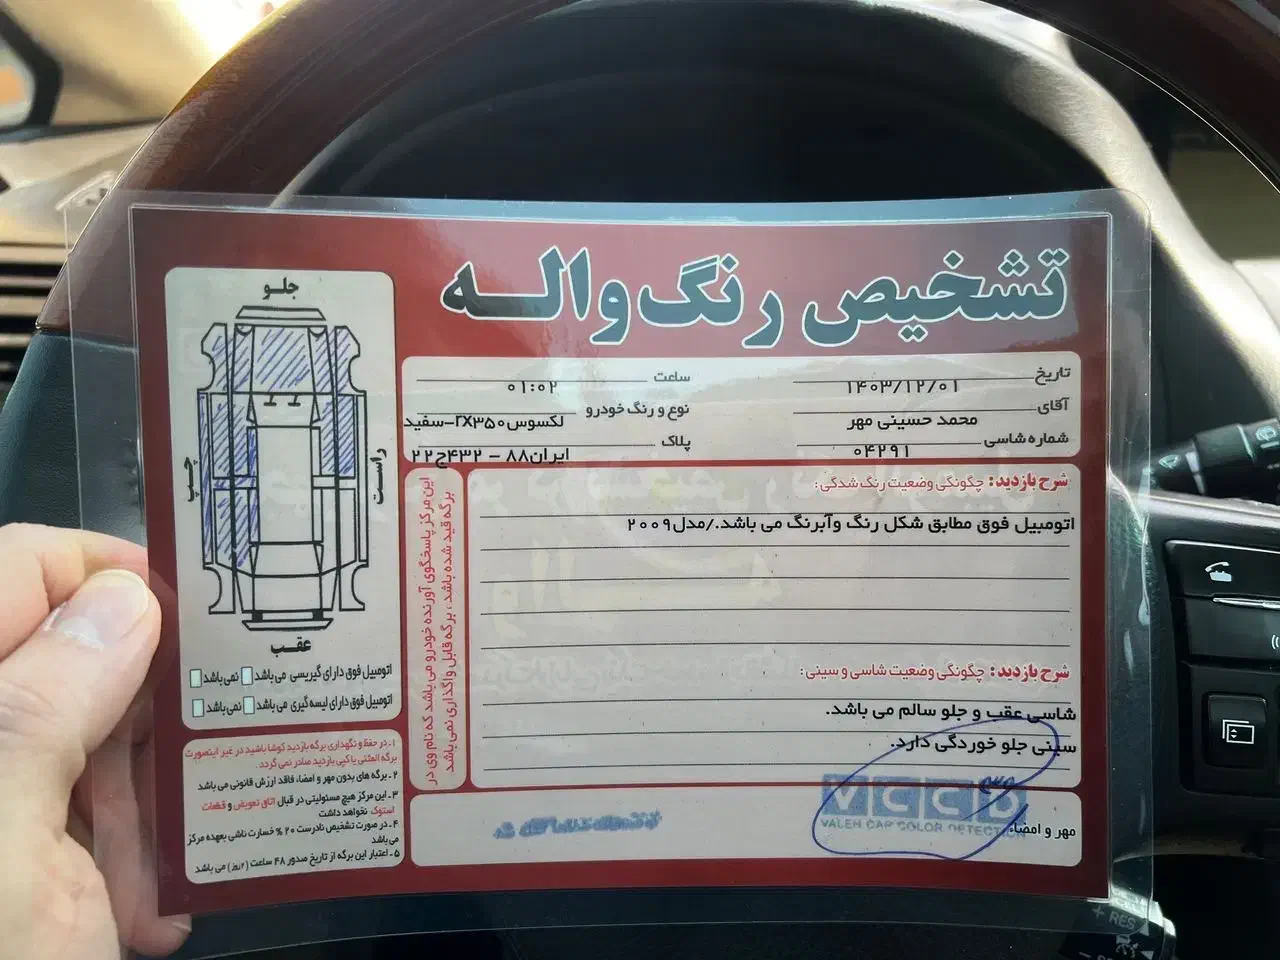 تشخیص رنگ واله
تاریخ ۱۴۰۳/۱۲/۰۱
ساعت ۰۱:۰۲
آقای محمد حسینی مهر
نوع و رنگ خودرو لکسوس RX۳۵۰-سفید
شماره شاسی ۰۴۲۹۱
پلاک ایران۸۸ - ۴۳۲ج۲۲
شرح بازدید: چگونگی وضعیت رنگ شدگی:
اتومبیل فوق مطابق شکل رنگ وآبرنگ می باشد./مدل۲۰۰۹
شرح بازدید: چگونگی وضعیت شاسی و سینی:
شاسی عقب و جلو سالم می باشد.
سینی جلو خوردگی دارد.
مهر و امضاء
VCCD
VALEH CAR COLOR DETECTION
این مرکز پاسخگوی آورنده خودرو می باشد که نام وی در
برگه قید شده باشد ، برگه قابل واگذاری نمی باشد
جلو
چپ
راست
عقب
اتومبیل فوق دارای گیریسی می باشد نمی باشد
اتومبیل فوق دارای لیسه گیری می باشد نمی باشد
۱- در حفظ و نگهداری برگه بازدید کوشا باشید در غیر اینصورت
برگه المثنی یا کپی بازدید صادر نمی گردد.
۲- برگه های بدون مهر و امضاء، فاقد ارزش قانونی می باشد
۳- این مرکز هیچ مسئولیتی در قبال اتاق تعویض و قطعات
استوک نخواهد داشت
۴- در صورت تشخیص نادرست ۲۰ % خسارت ناشی بعهده مرکز
می باشد
۵- اعتبار این برگه از تاریخ صدور ۴۸ ساعت (۲روز) می باشد
+ RES